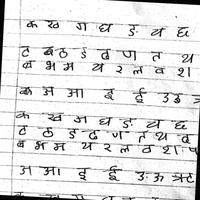 क ख ग घ ङ च छ
ट ठ ड ढ ण त थ
ब भ म य र ल व श
अ आ इ ई उ ऊ
क ख ग घ ङ च छ
ट ठ ड ढ ण त थ द
ब भ म य र ल व श
अ आ इ ई उ ऊ ऋ